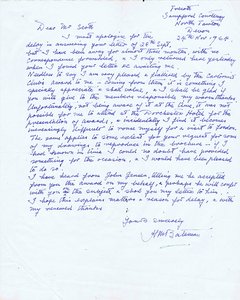 Sampford Courtenay
North Tawton
Devon
Dear Mr Scott
I must apologise for the
delay in answering your letter of 26th Sept.
but I have been away for about a month, with no
correspondence forwarded, & I only returned here yesterday
when I found your letter so awaiting me.
Needless to say I am very pleased & flattered by the
Club's award to me – coming from them it is something I
specially appreciate & shall value, & I shall be glad if
you will give to the members responsible my warm thanks.
Unfortunately, not being aware of it at the time, it was not
possible for me to attend at the Dorchester Hotel for the
presentation of awards, & incidentally I find it becomes
increasingly difficult to rouse myself for a visit to London.
The same applies to some extent for your request for some
of my drawings, to reproduce in the brochure – if I
had known in time I could no doubt have provided
something for the occasion, & I would have been pleased
to do so.
I have heard from John Jensen, telling me he accepted
from you the award on my behalf, & perhaps he will confer
with you on the subject & shew you my letter to him.
I hope this explains matters & reason for delay, & with
my renewed thanks
Yours sincerely
H M Bateman